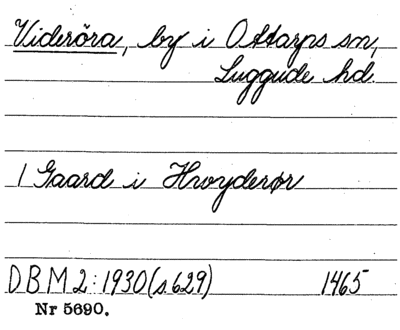 Videröra, by i Ottarps sn,
Luggude hd.
1 Gaard i Hwyderør
DBM 2:1930 (s. 629) 1465
Nr 5690.